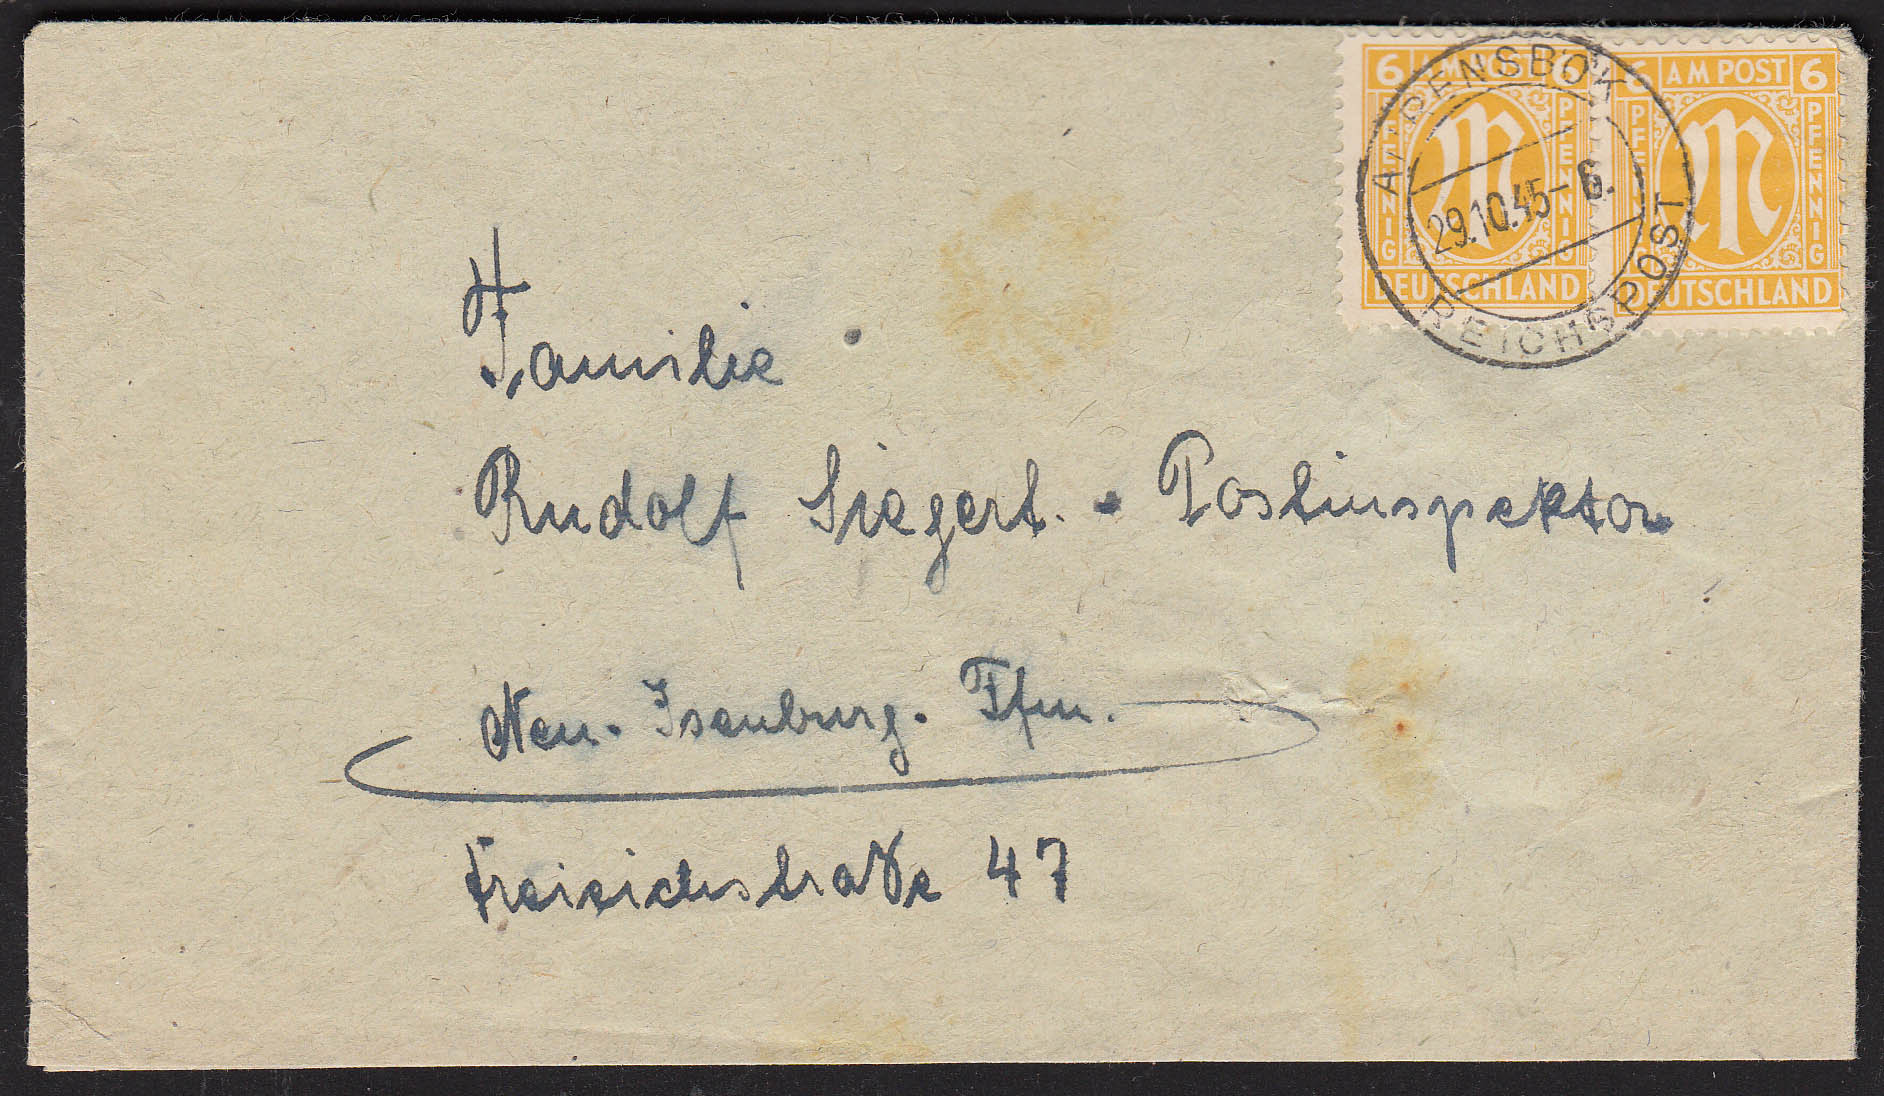 6 AM POST 6
PFENNIG PFENNIG
DEUTSCHLAND
6 AM POST 6
PFENNIG PFENNIG
DEUTSCHLAND
AHRENSBÖK
29.10.45-6.
REICHSPOST
Familie
Rudolf Siegert. - Postinspektor
Neu-Isenburg. Ffm.
47